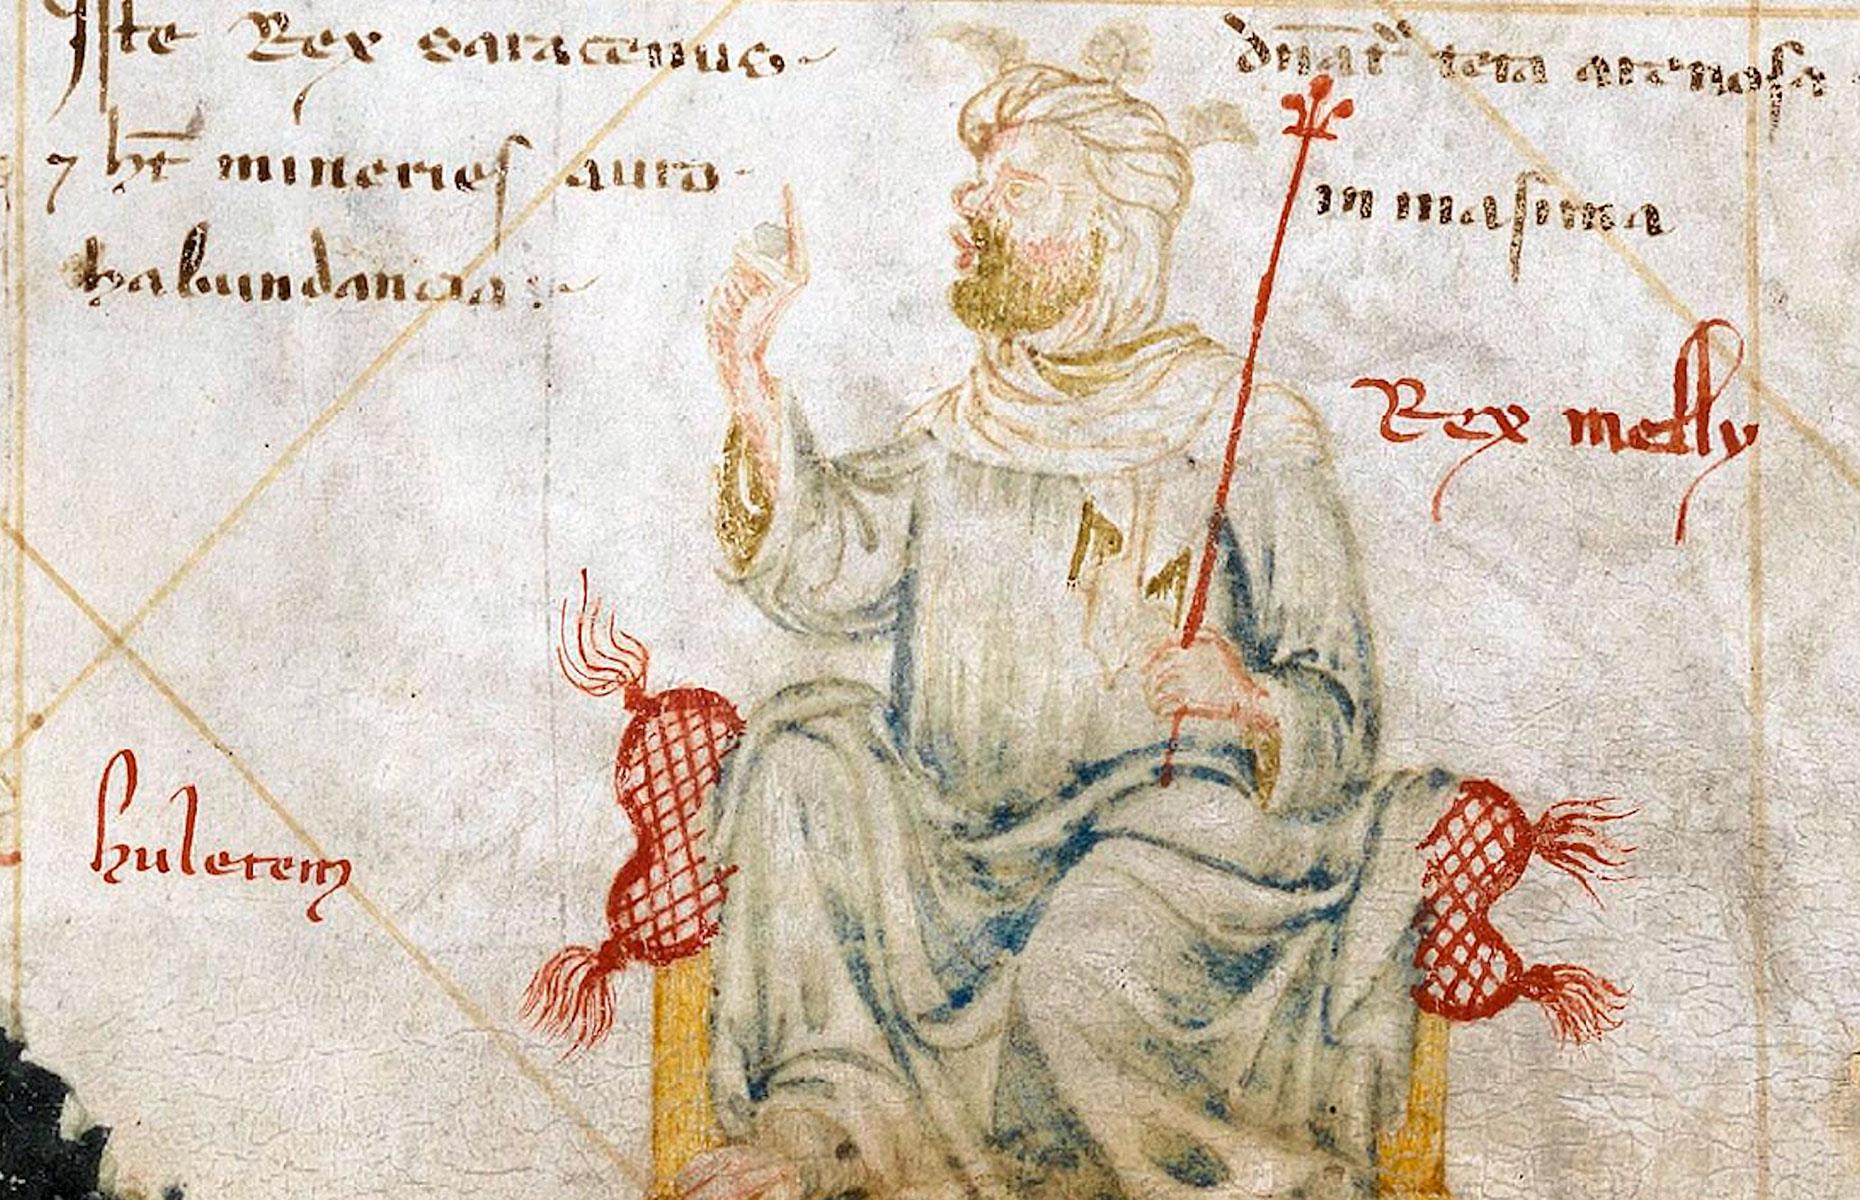 Iste Rex saracenus
⁊ ht̄ mineries auro
habundancia
dn̄at̄ tera arenosa
in masima
Rex melly
huletem